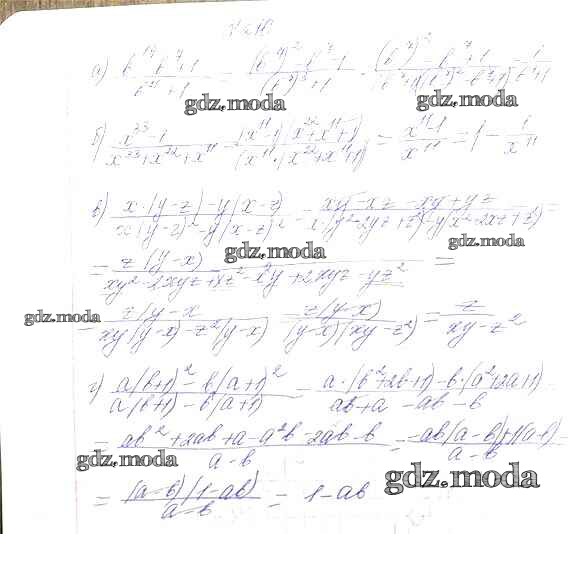 а) (b^14 - b^7 + 1)/(b^21 + 1) = ((b^7)^2 - b^7 + 1)/((b^7)^3 + 1) = ((b^7)^2 - b^7 + 1)/((b^7 + 1)((b^7)^2 - b^7 + 1)) = 1/(b^7 + 1)
gdz.moda gdz.moda gdz.moda gdz.moda
б) (x^33 - 1)/(x^33 + x^22 + x^11) = ((x^11 - 1)(x^22 + x^11 + 1))/(x^11 · (x^22 + x^11 + 1)) = (x^11 - 1)/x^11 = 1 - 1/x^11
в) (x·(y-z) - y(x-z))/(x(y-z)^2 - y(x-z)^2) = (xy - xz - xy + yz)/(x(y^2 - 2yz + z^2) - y(x^2 - 2xz + z^2)) =
gdz.moda gdz.moda
= z(y-x)/(xy^2 - 2xyz + xz^2 - x^2y + 2xyz - yz^2) =
gdz.moda
= z(y-x)/(xy(y-x) - z^2(y-x)) = z(y-x)/((y-x)(xy-z^2)) = z/(xy-z^2)
г) (a(b+1)^2 - b(a+1)^2)/(a(b+1) - b(a+1)) = (a·(b^2+2b+1) - b·(a^2+2a+1))/(ab+a-ab-b) =
= (ab^2 + 2ab + a - a^2b - 2ab - b)/(a-b) = (-ab(a-b) + 1(a-b))/(a-b) =
gdz.moda gdz.moda
= ((a-b)(1-ab))/(a-b) = 1-ab